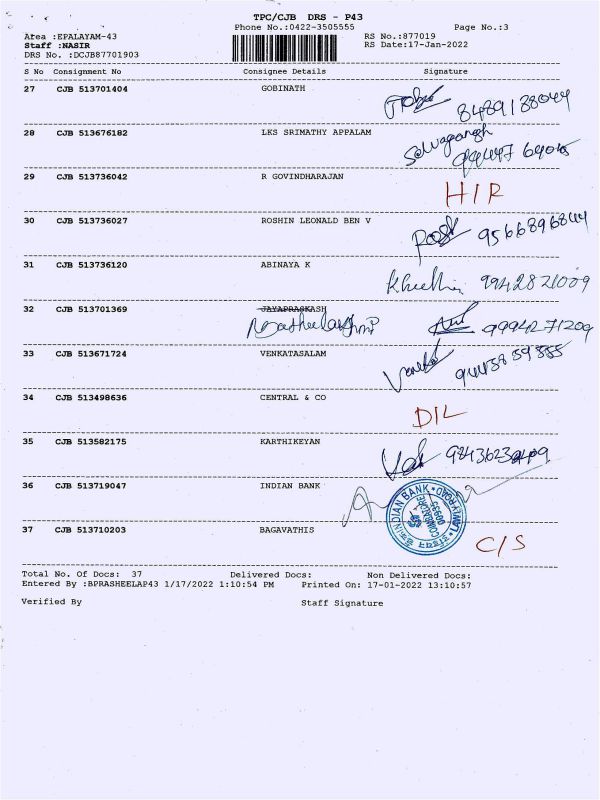 TPC/CJB DRS - P43
Phone No.:0422-3505555 Page No.:3
Area :EPALAYAM-43 RS No.:877019
Staff :NASIR RS Date:17-Jan-2022
DRS No. :DCJB87701903
S No Consignment No Consignee Details Signature
27 CJB 513701404 GOBINATH
8489138044
28 CJB 513676182 LKS SRIMATHY APPALAM
29 CJB 513736042 R GOVINDHARAJAN
H/R
30 CJB 513736027 ROSHIN LEONALD BEN V
9566896844
31 CJB 513736120 ABINAYA K
9942871009
32 CJB 513701369 JAYAPRASKASH
9994271209
33 CJB 513671724 VENKATASALAM
34 CJB 513498636 CENTRAL & CO
D/L
35 CJB 513582175 KARTHIKEYAN
36 CJB 513719047 INDIAN BANK
INDIAN BANK
COIMBATORE
00935
37 CJB 513710203 BAGAVATHIS
C/S
Total No. Of Docs: 37 Delivered Docs: Non Delivered Docs:
Entered By :BPRASHEELAP43 1/17/2022 1:10:54 PM Printed On: 17-01-2022 13:10:57
Verified By Staff Signature